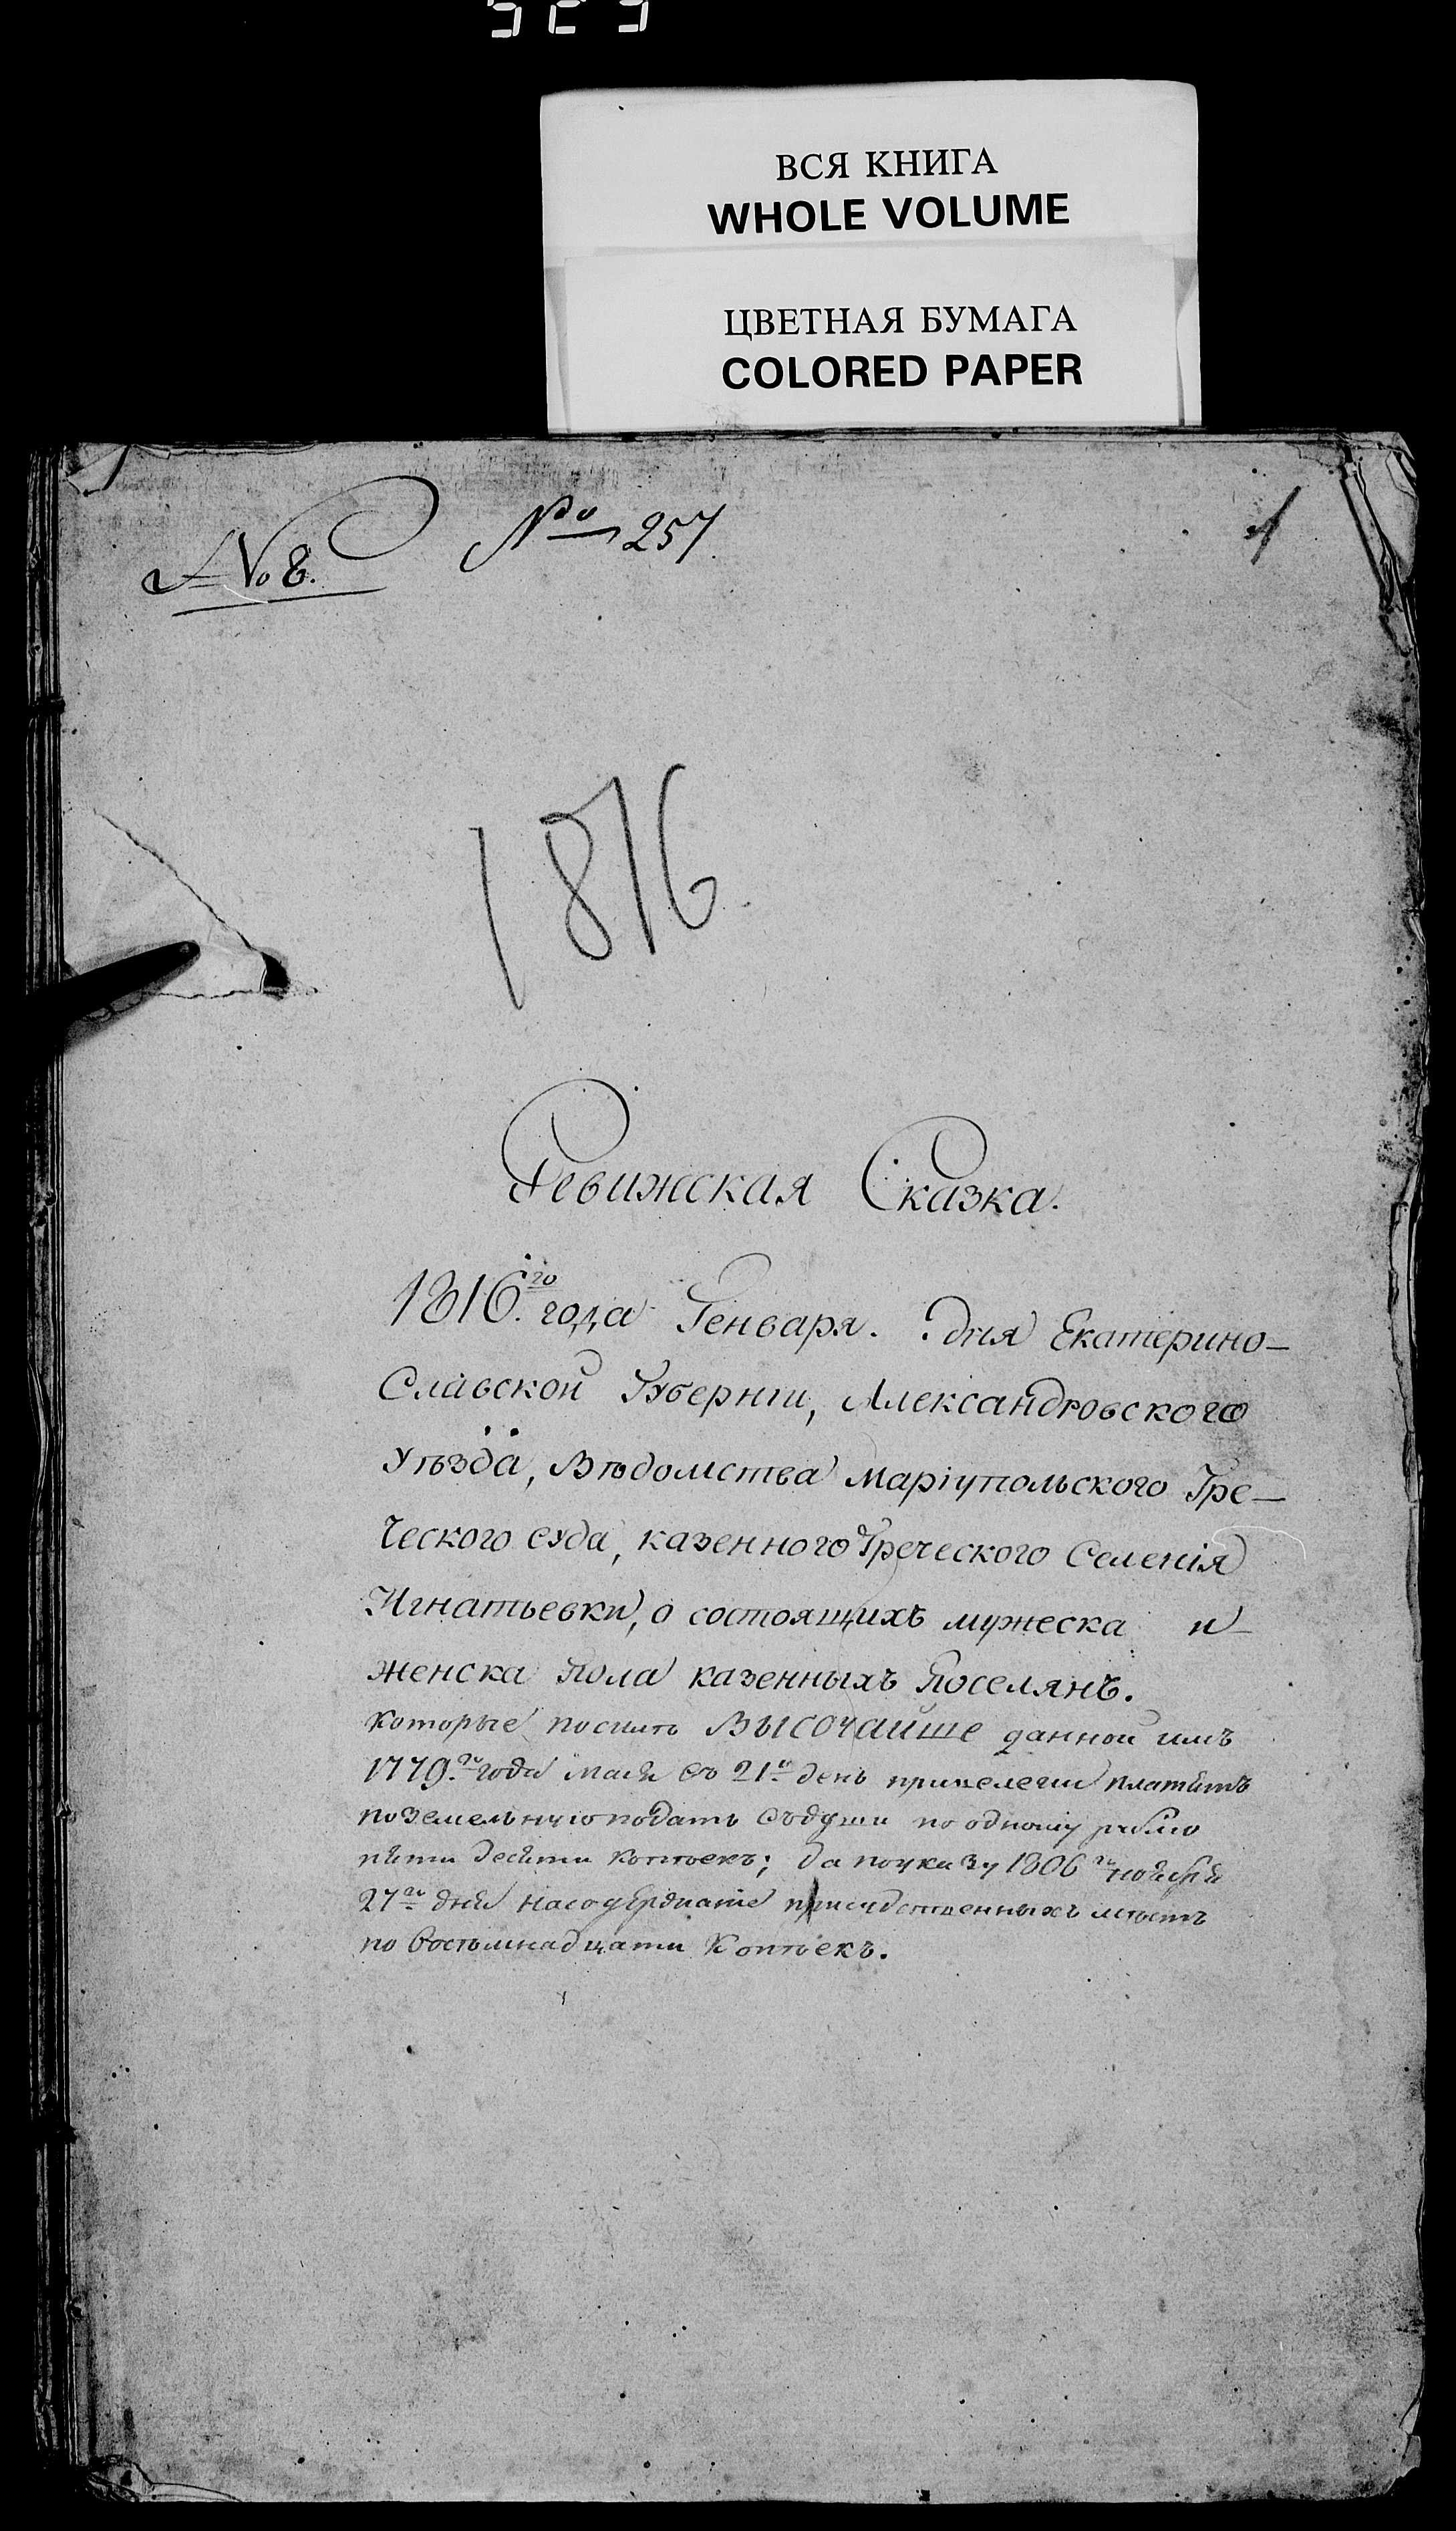 ВСЯ КНИГА
WHOLE VOLUME
ЦВЕТНАЯ БУМАГА
COLORED PAPER
№ 8. № 257 1
1816
Ревижская Сказка.
1816.го года Генваря. дня Екатерино-
Славской Губернии, Александровского
Уѣзда, Вѣдомства Маріупольского Гре-
ческого суда, казенного Греческого Селенія
Игнатьевки, о состоящихъ мужеска и
женска пола казенныхъ Поселянъ.
Которые по силѣ Высочайше данной имъ
1779.го года маія въ 21.й день привелегии платятъ
поземельную подать съ души по одному рублю
пяти десяти копѣекъ; да по указу 1806го ноября
27го дня на содержание присудственныхъ мѣстъ
по восьмнадцати Копѣекъ.